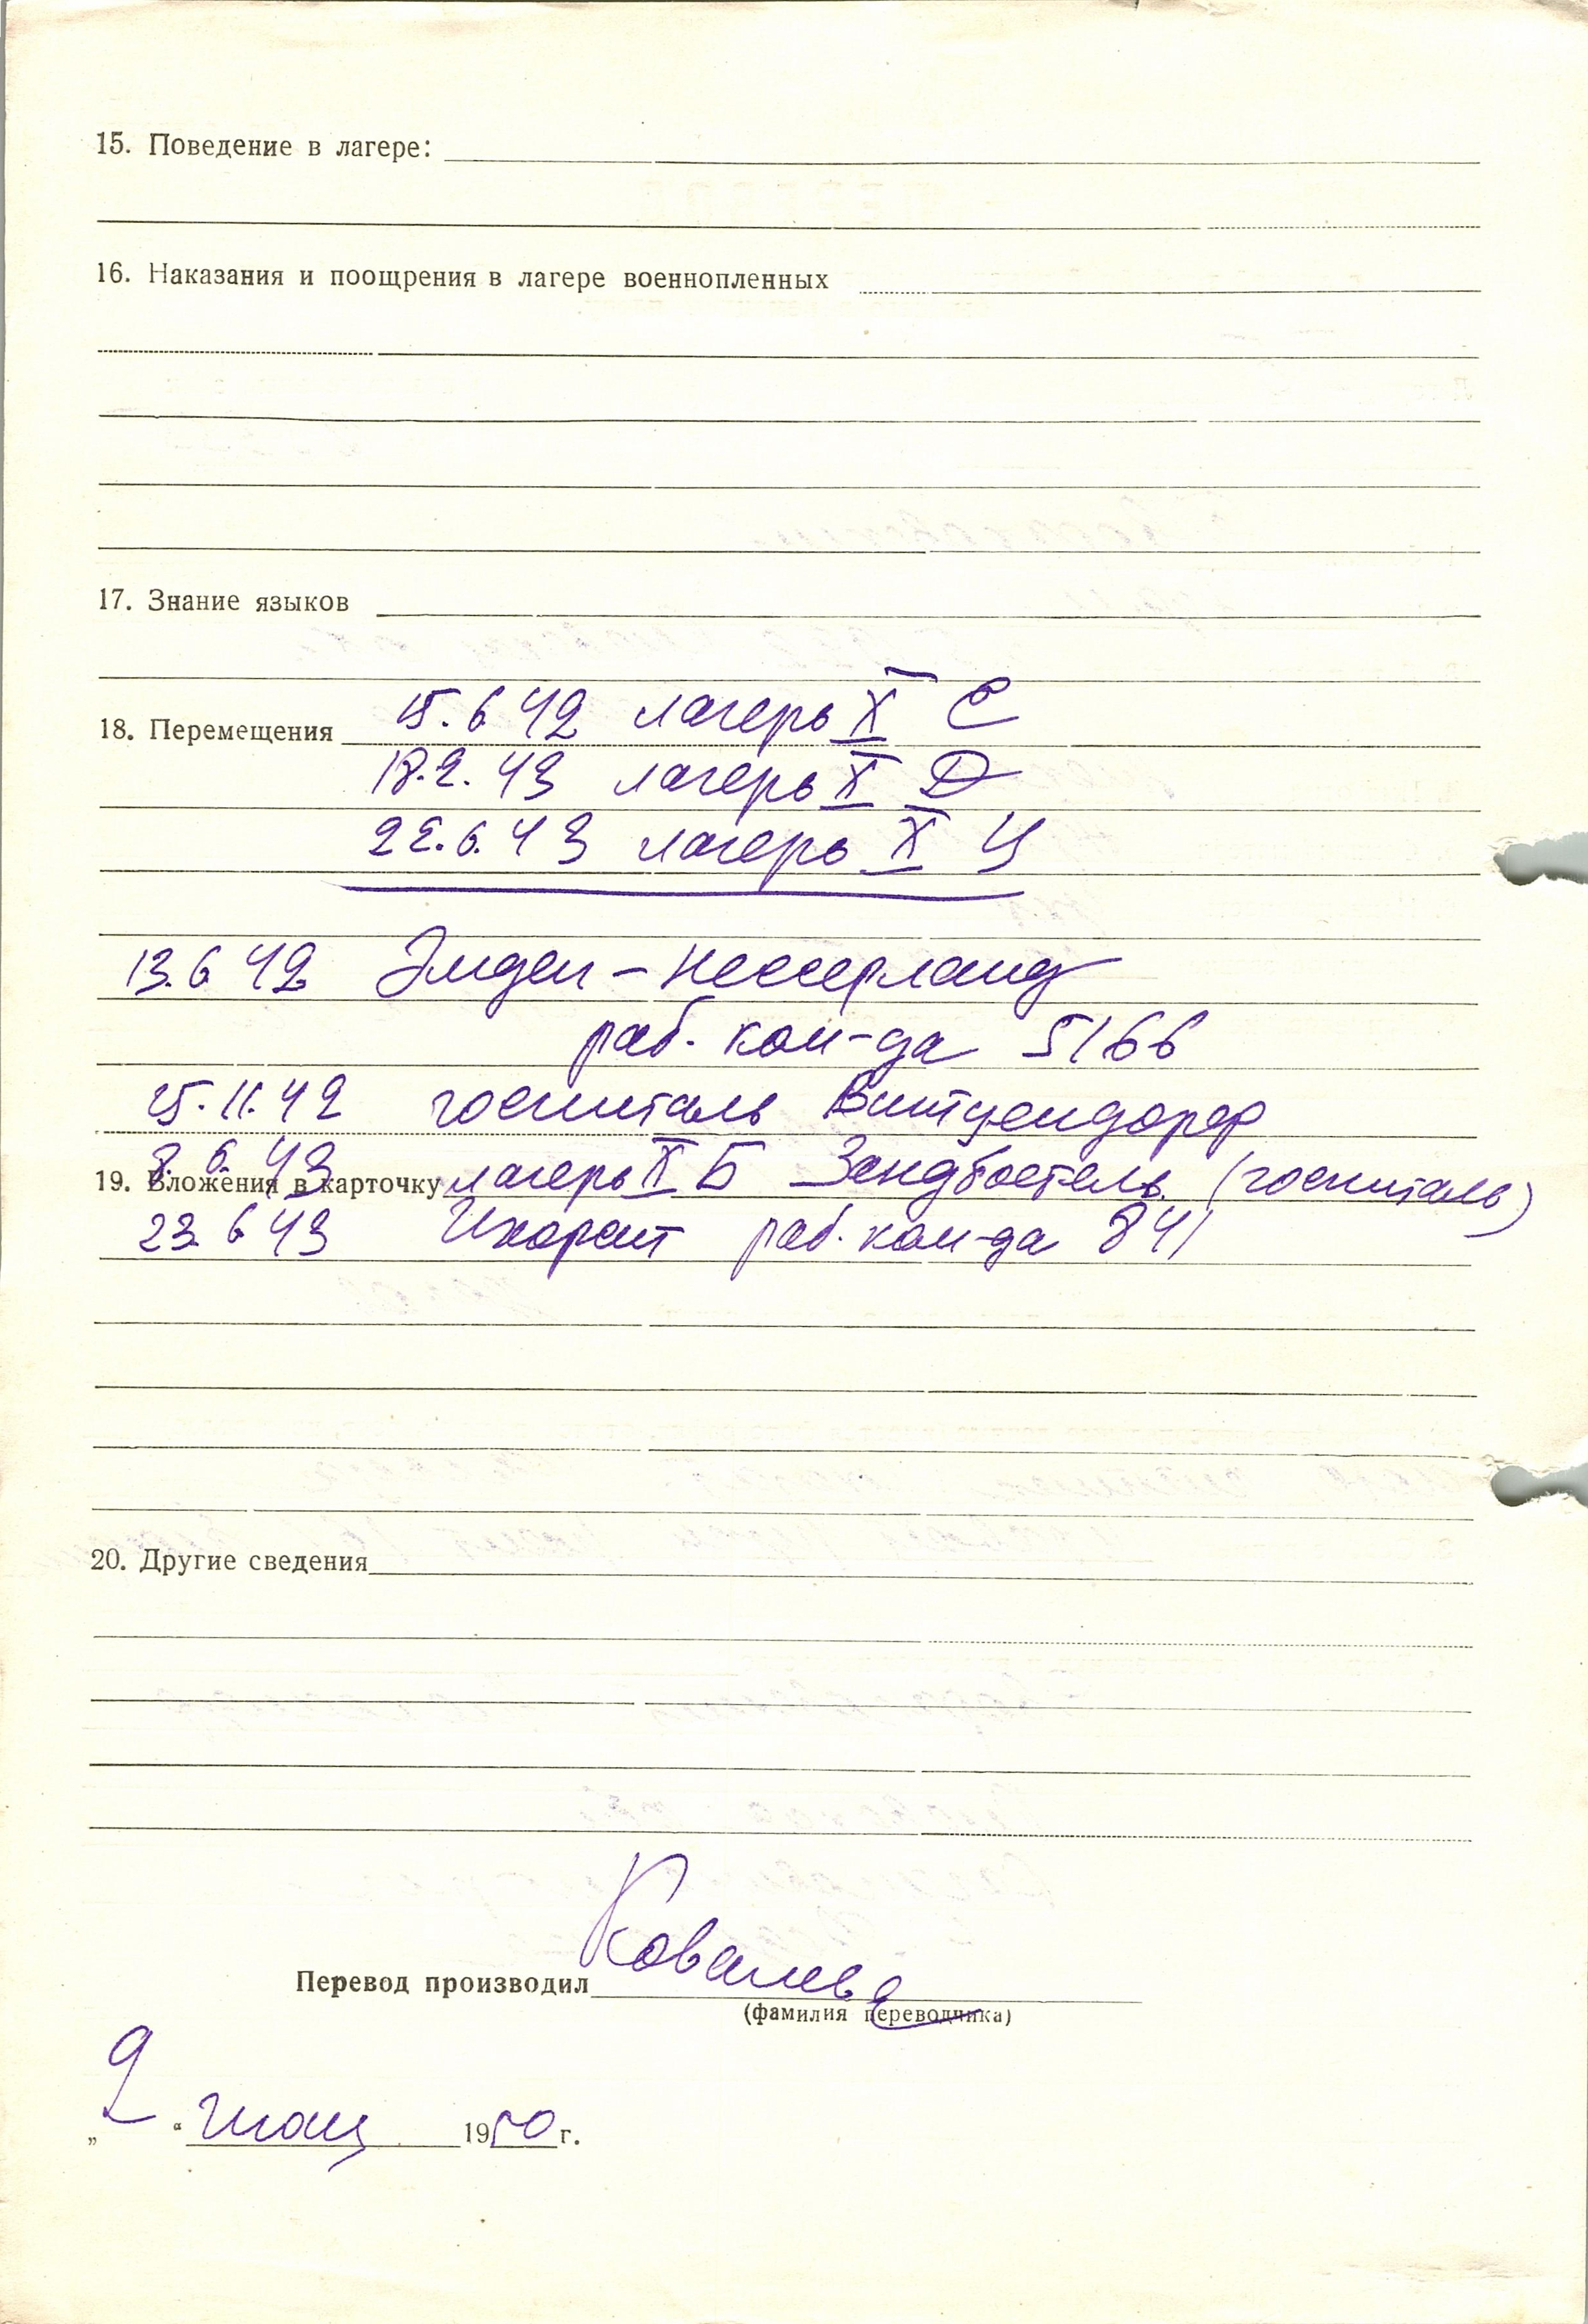 15. Поведение в лагере:
16. Наказания и поощрения в лагере военнопленных
17. Знание языков
18. Перемещения 15.6.42 лагерь X C
18.2.43 лагерь X D
22.6.43 лагерь X Ц
13.6.42 Эмден - Нессерланд
раб. ком-да 5166
25.11.42 госпиталь Витцендорф
8.6.43 лагерь X Б Зандбостель (госпиталь)
19. Вложения в карточку
23.6.43 раб. ком-да 841
20. Другие сведения
Перевод производил Ковалева
(фамилия переводчика)
„2“ 1950 г.